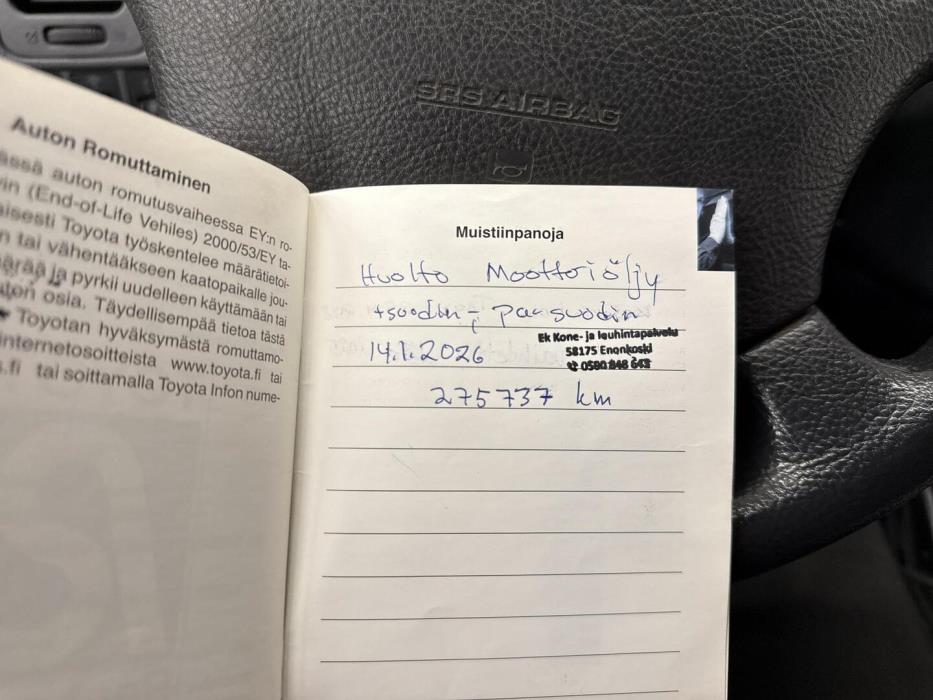 SRS AIRBAG
Auton Romuttaminen
ässä auton romutusvaiheessa EY:n ro-
in (End-of-Life Vehiles) 2000/53/EY ta-
aisesti Toyota työskentelee määrätietoi-
n tai vähentääkseen kaatopaikalle jou-
määrää ja pyrkii uudelleen käyttämään tai
auton osia. Täydellisempää tietoa tästä
Toyotan hyväksymästä romuttamo-
internetosoitteista www.toyota.fi tai
s.fi tai soittamalla Toyota Infon nume-
Muistiinpanoja
Huolto Moottoriöljy
+soodin
14.1.2026
Ek Kone- ja
58175 Enonkoski
275737 km